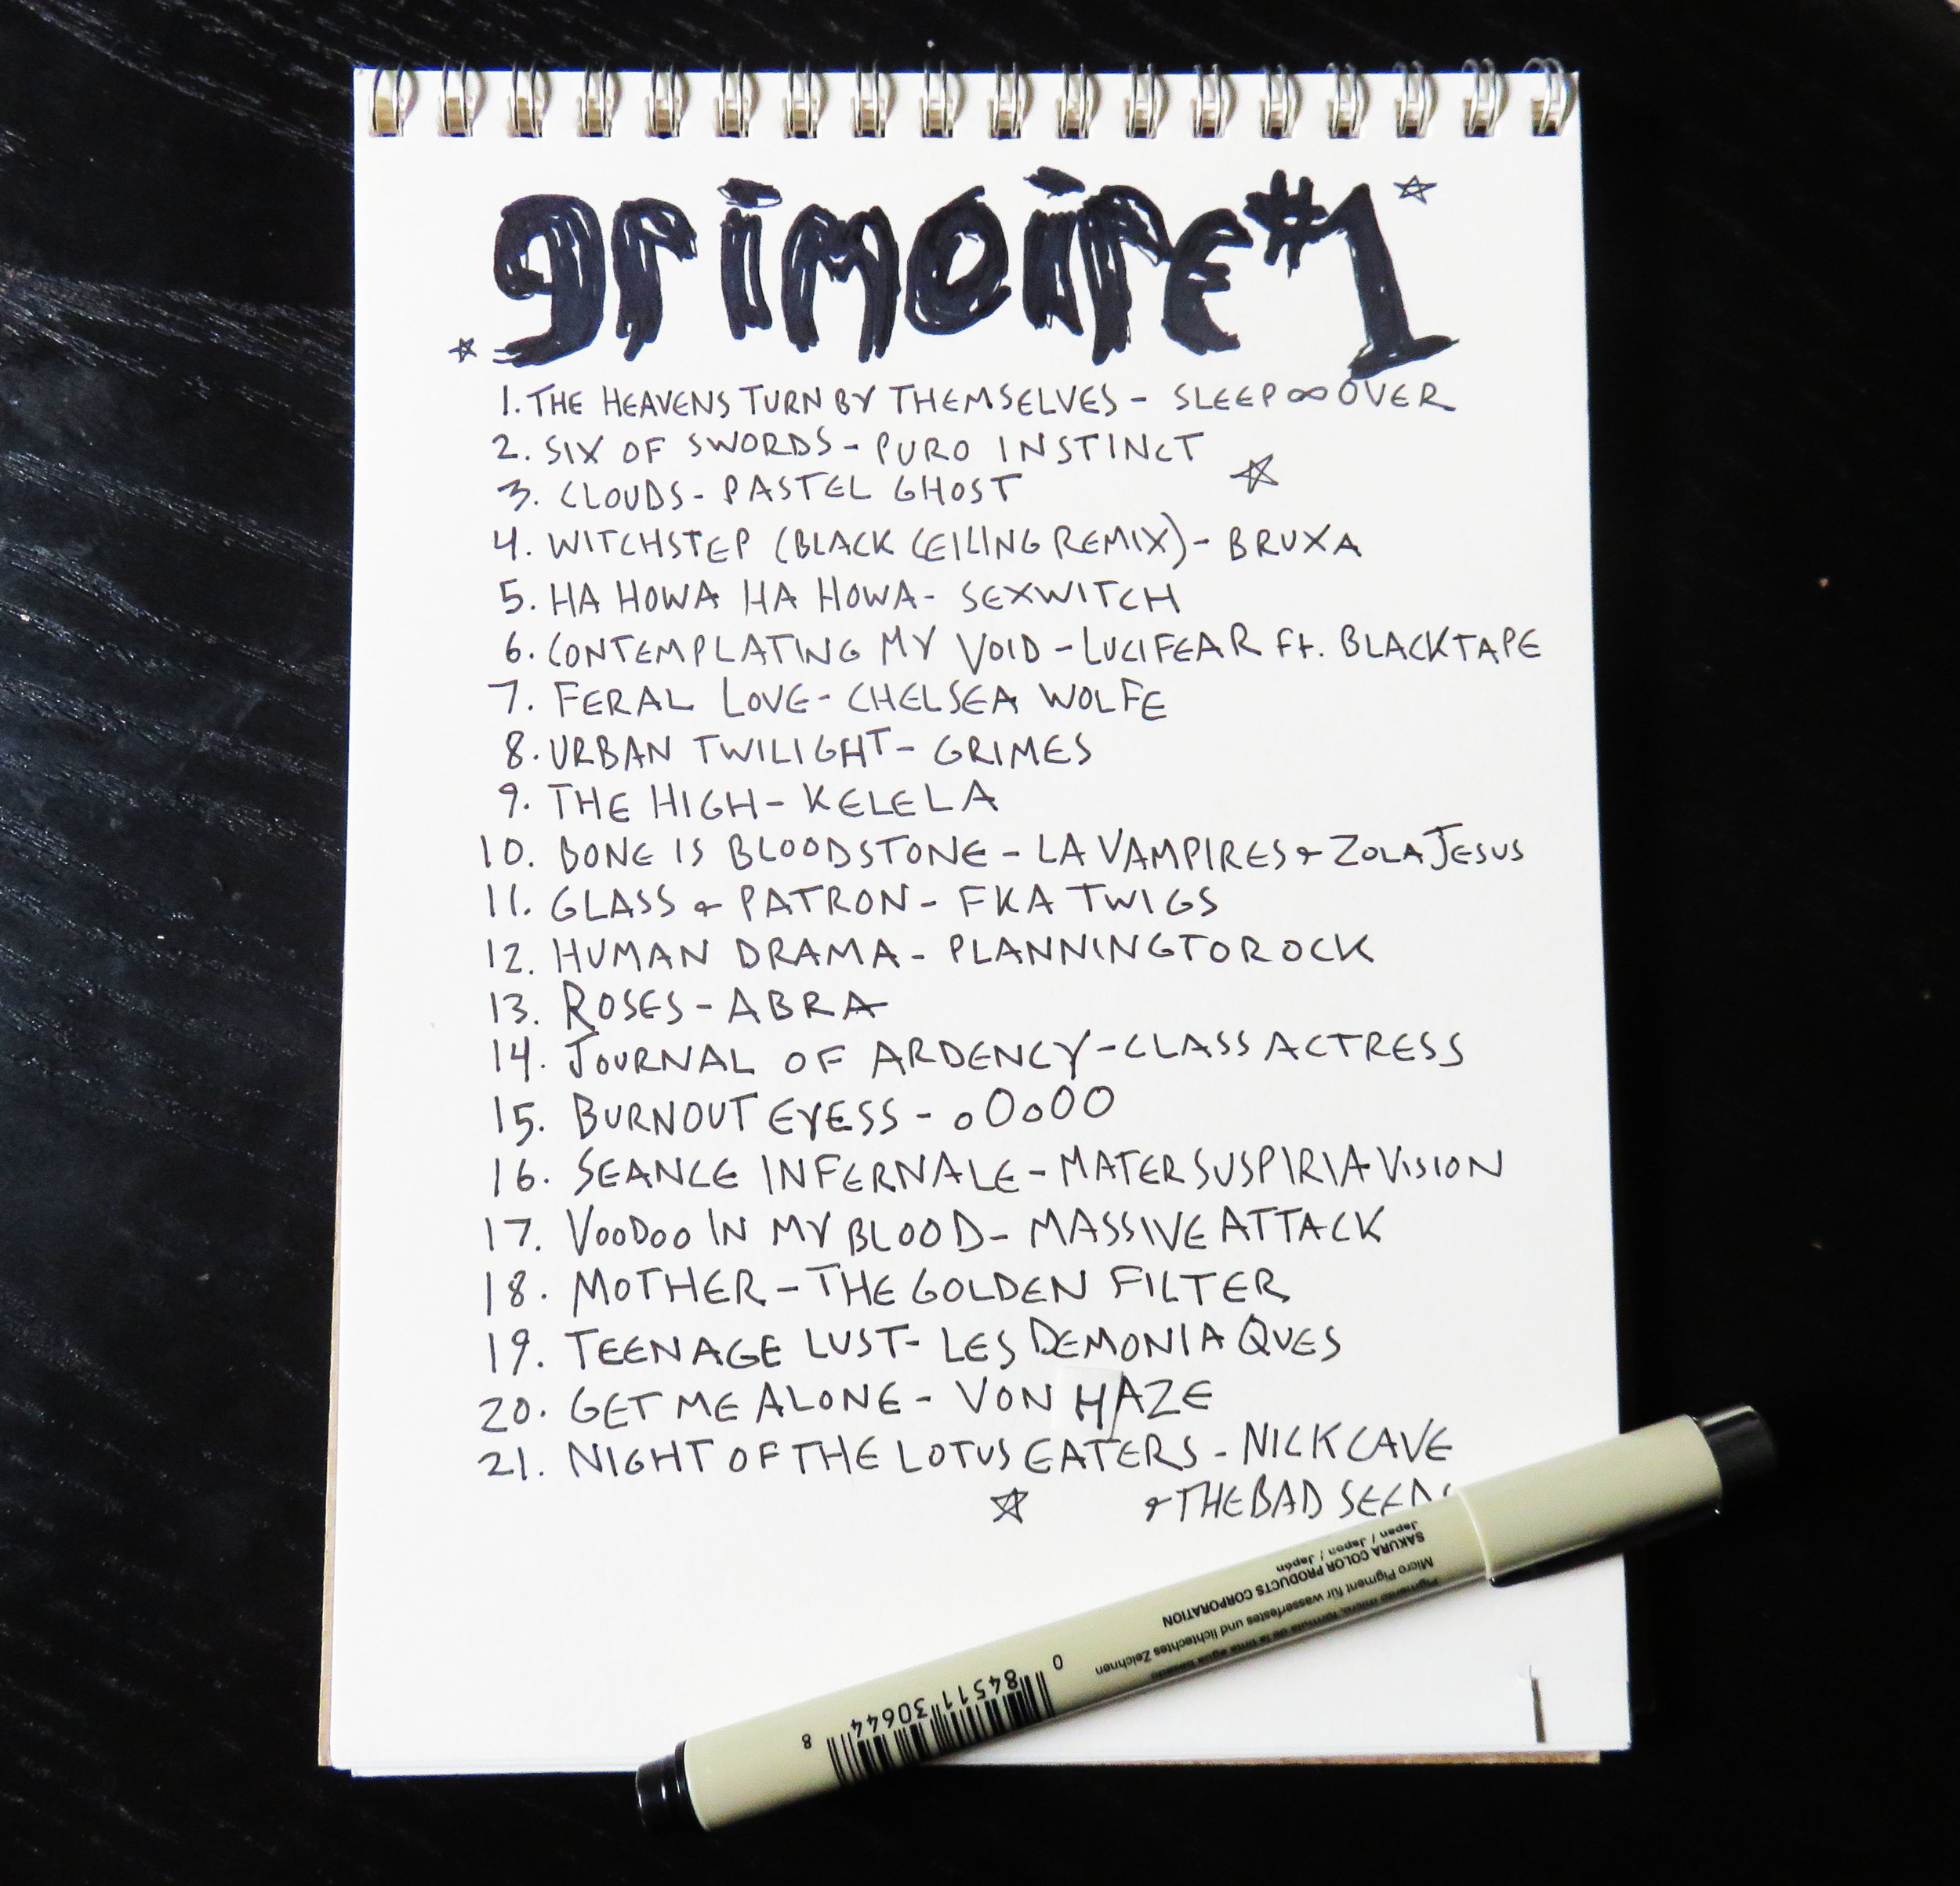 grimoire #1
1. THE HEAVENS TURN BY THEMSELVES - SLEEP ∞ OVER
2. SIX OF SWORDS - PURO INSTINCT
3. CLOUDS - PASTEL GHOST
4. WITCHSTEP (BLACK CEILING REMIX) - BRUXA
5. HA HOWA HA HOWA - SEXWITCH
6. CONTEMPLATING MY VOID - LUCIFEAR Ft. BLACKTAPE
7. FERAL LOVE - CHELSEA WOLFE
8. URBAN TWILIGHT - GRIMES
9. THE HIGH - KELELA
10. BONE IS BLOODSTONE - LA VAMPIRES & ZOLA JESUS
11. GLASS & PATRON - FKA TWIGS
12. HUMAN DRAMA - PLANNINGTOROCK
13. ROSES - ABRA
14. JOURNAL OF ARDENCY - CLASS ACTRESS
15. BURNOUT EYESS - oOoOO
16. SEANCE INFERNALE - MATER SUSPIRIA VISION
17. VOODOO IN MY BLOOD - MASSIVE ATTACK
18. MOTHER - THE GOLDEN FILTER
19. TEENAGE LUST - LES DEMONIAQUES
20. GET ME ALONE - VON HAZE
21. NIGHT OF THE LOTUS EATERS - NICK CAVE
& THE BAD SEEDS
Japan / Japon / Japón
SAKURA COLOR PRODUCTS CORPORATION
Micro Pigment für wasserfestes und lichtechtes Zeichnen
0 84511 30644 8